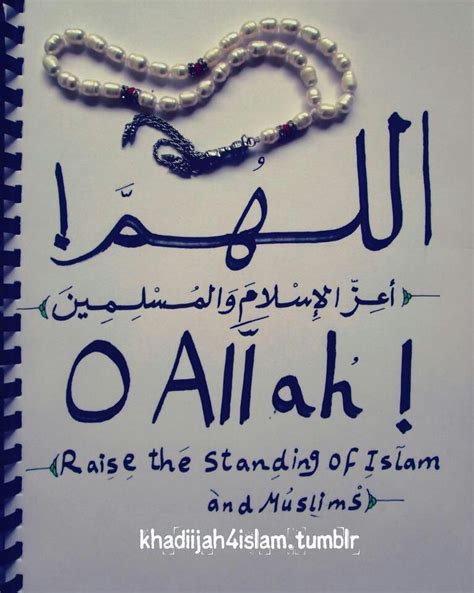 اللهُمَّ!
أعِزّ الإِسْلَامَ وَالمُسْلِمِينَ
O Allah !
Raise the Standing of Islam
and Muslims
khadiijah4islam.tumblr